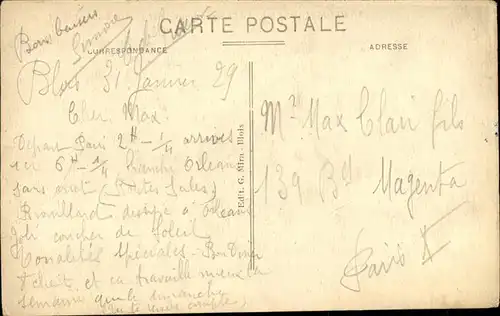 Bons baisers
CARTE POSTALE
CORRESPONDANCE
ADRESSE
Blois 31 Janvier 29
Cher Max
Départ Paris 2H - 1/4 arrivés
ici 6H - 1/4 Orléans
sans arrêt (Routes Sales)
Brouillard dissipé à Orléans
Joli coucher de Soleil
Spéciales - Bon Diner
et ça travaille mieux la
semaine que le dimanche
Edit. G. Mira - Blois
Mr Max Clair fils
139 Bd Magenta
Paris X